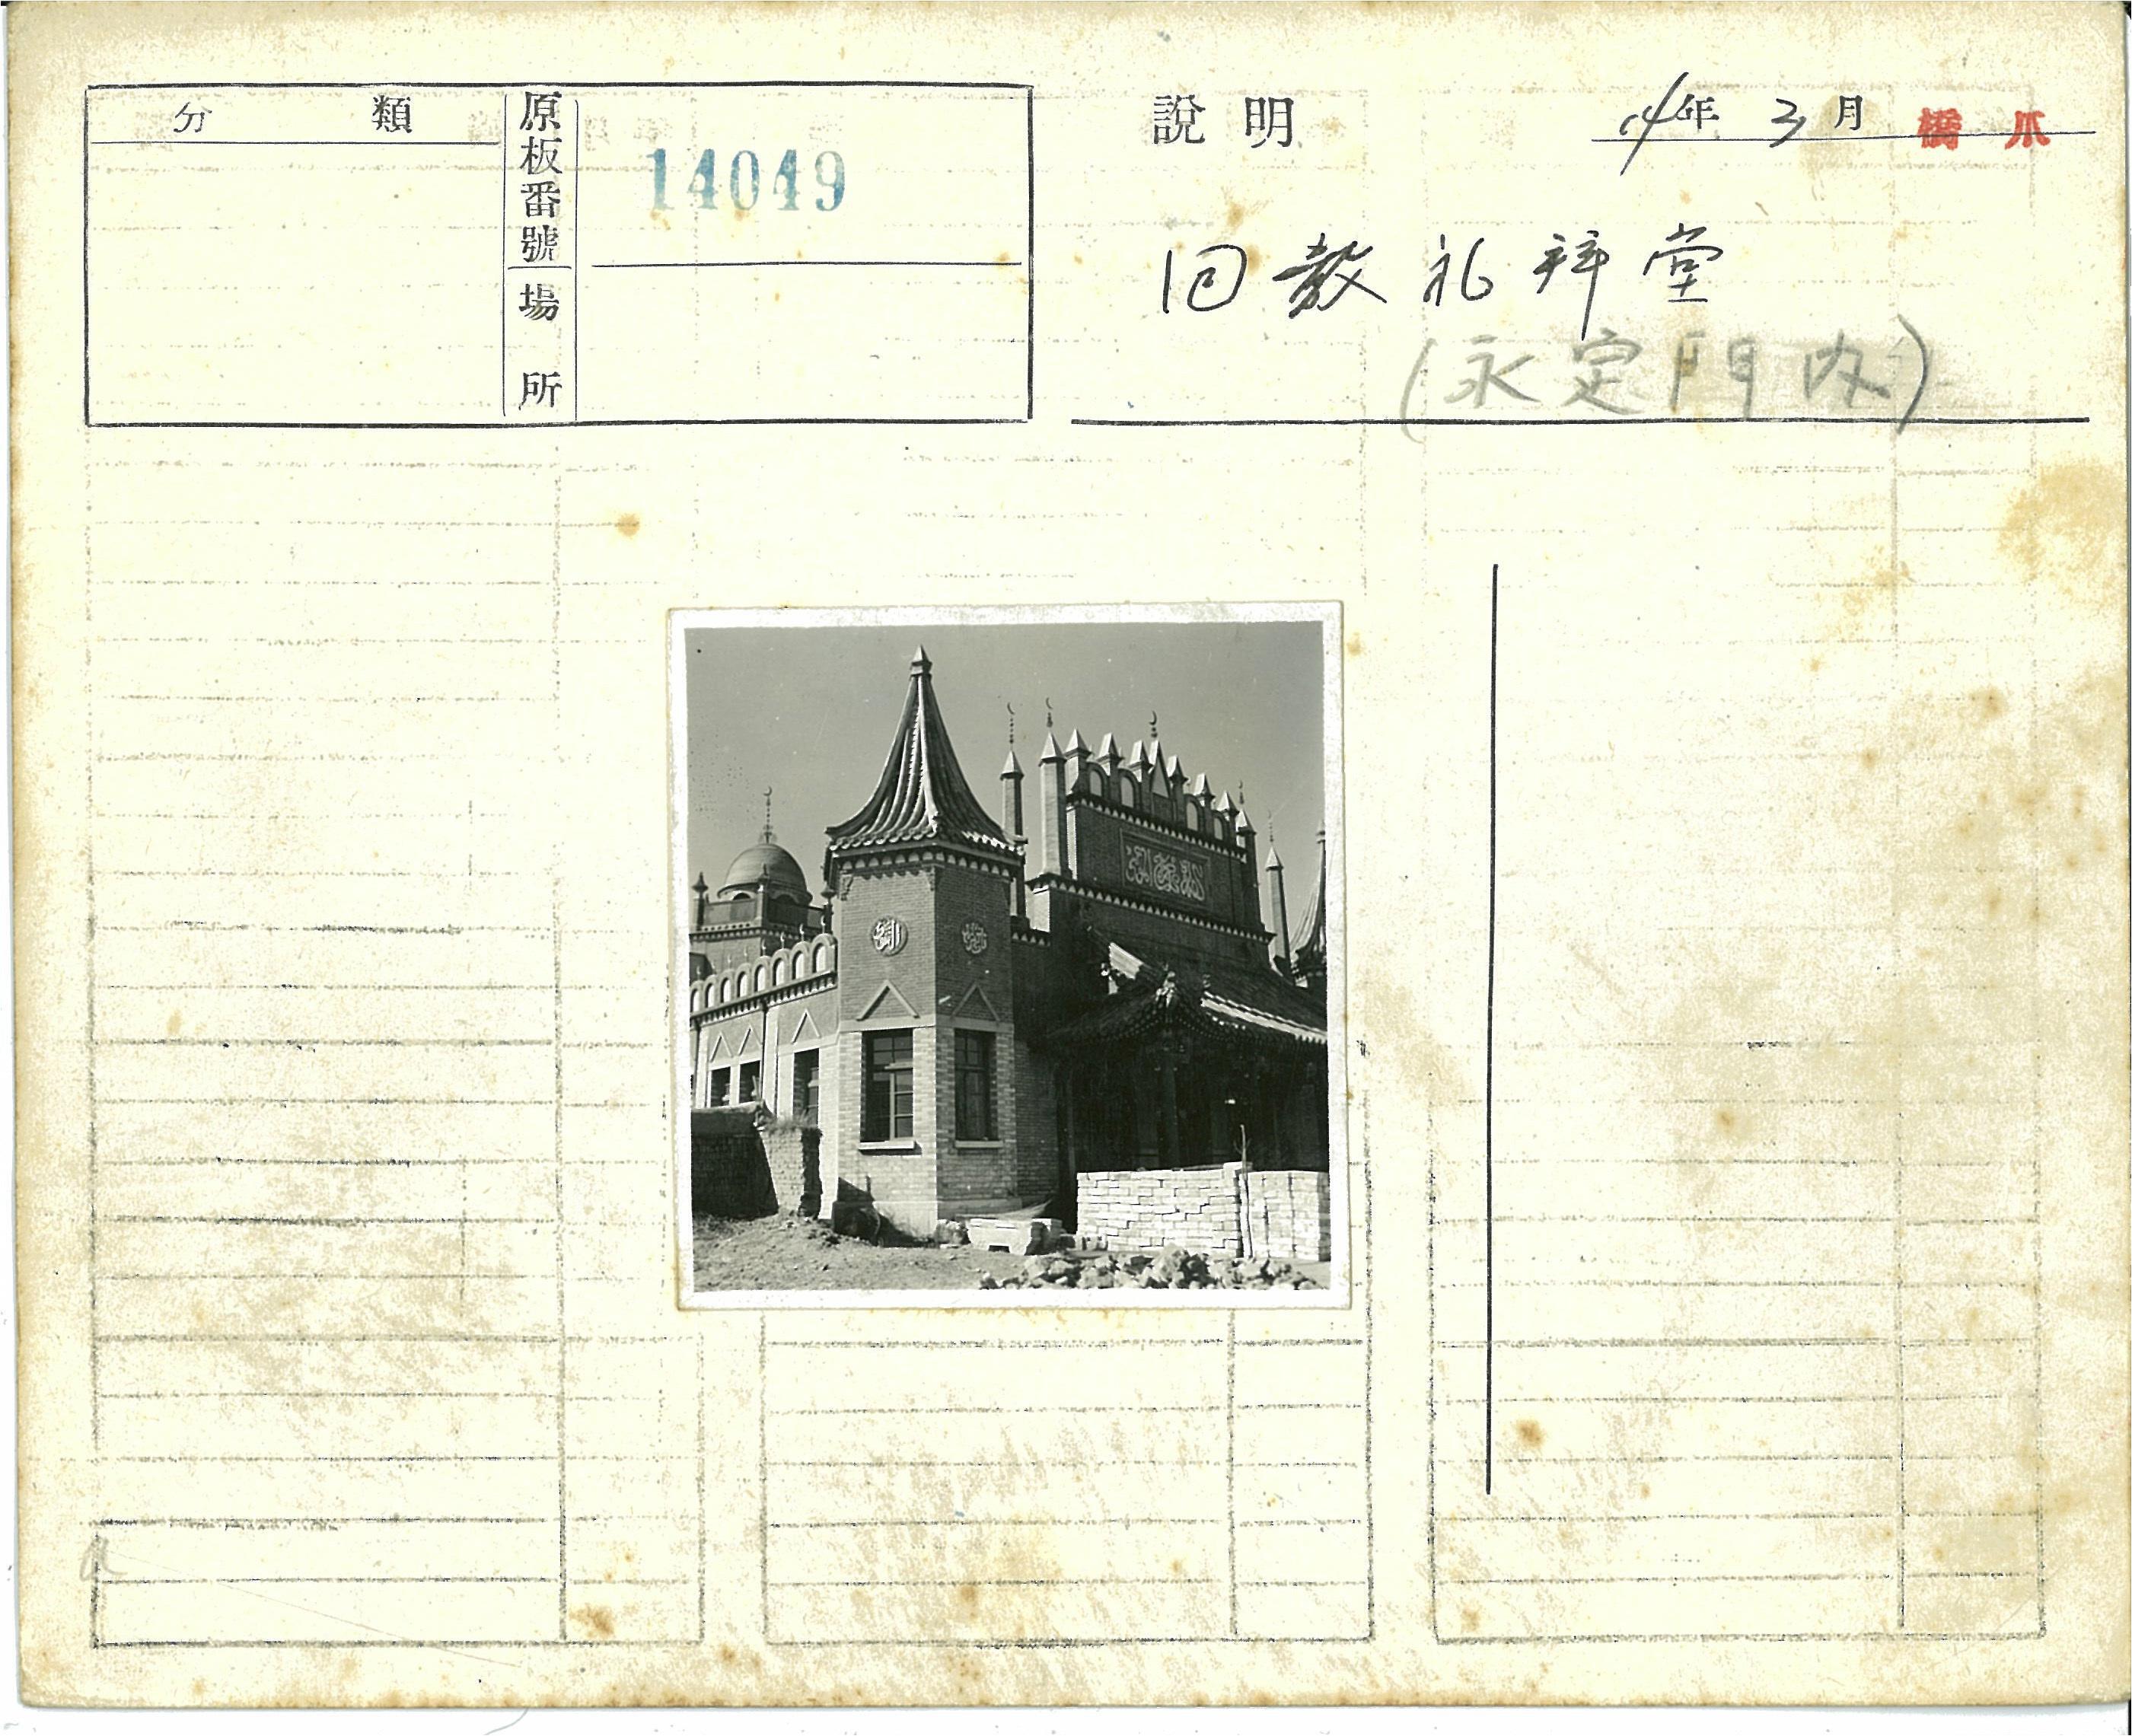 分類
原板番號
14049
場所
說明
14年3月
橋爪
回教礼拜堂
(永定門内)